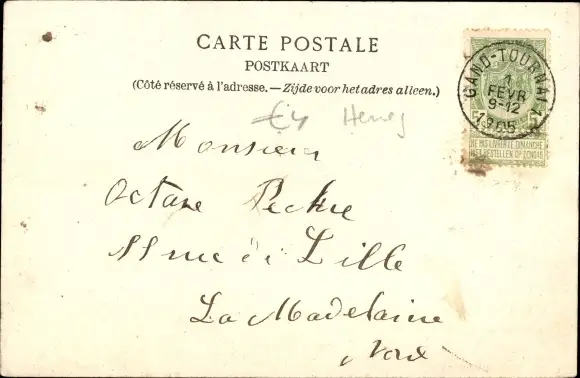 CARTE POSTALE
POSTKAART
(Côté réservé à l'adresse. — Zijde voor het adres alleen.)
GAND-TOURNAI
1
FEVR
9-12
1905
NE PAS LIVRER LE DIMANCHE
NIET BESTELLEN OP ZONDAG
£4
Monsieur
Octave
rue
Lille
La Madelaine
Nord